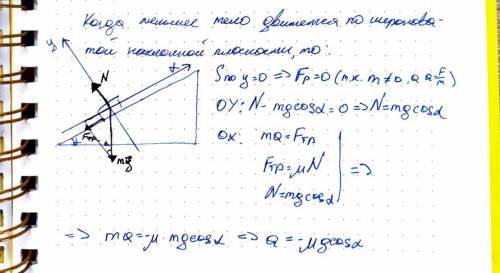 Когда меньшее тело движется по шерохова-
той наклонной плоскости, то:
y
N
x
Sпо y=0 => Fp=0 (т.к. m≠0, а a=F/m)
OY: N-mgcosα=0 => N=mgcosα
Fтр
α
mg
OX: ma=Fтр
Fтр=μN
=>
N=mgcosα
=> ma=-μ·mgcosα => a=-μgcosα